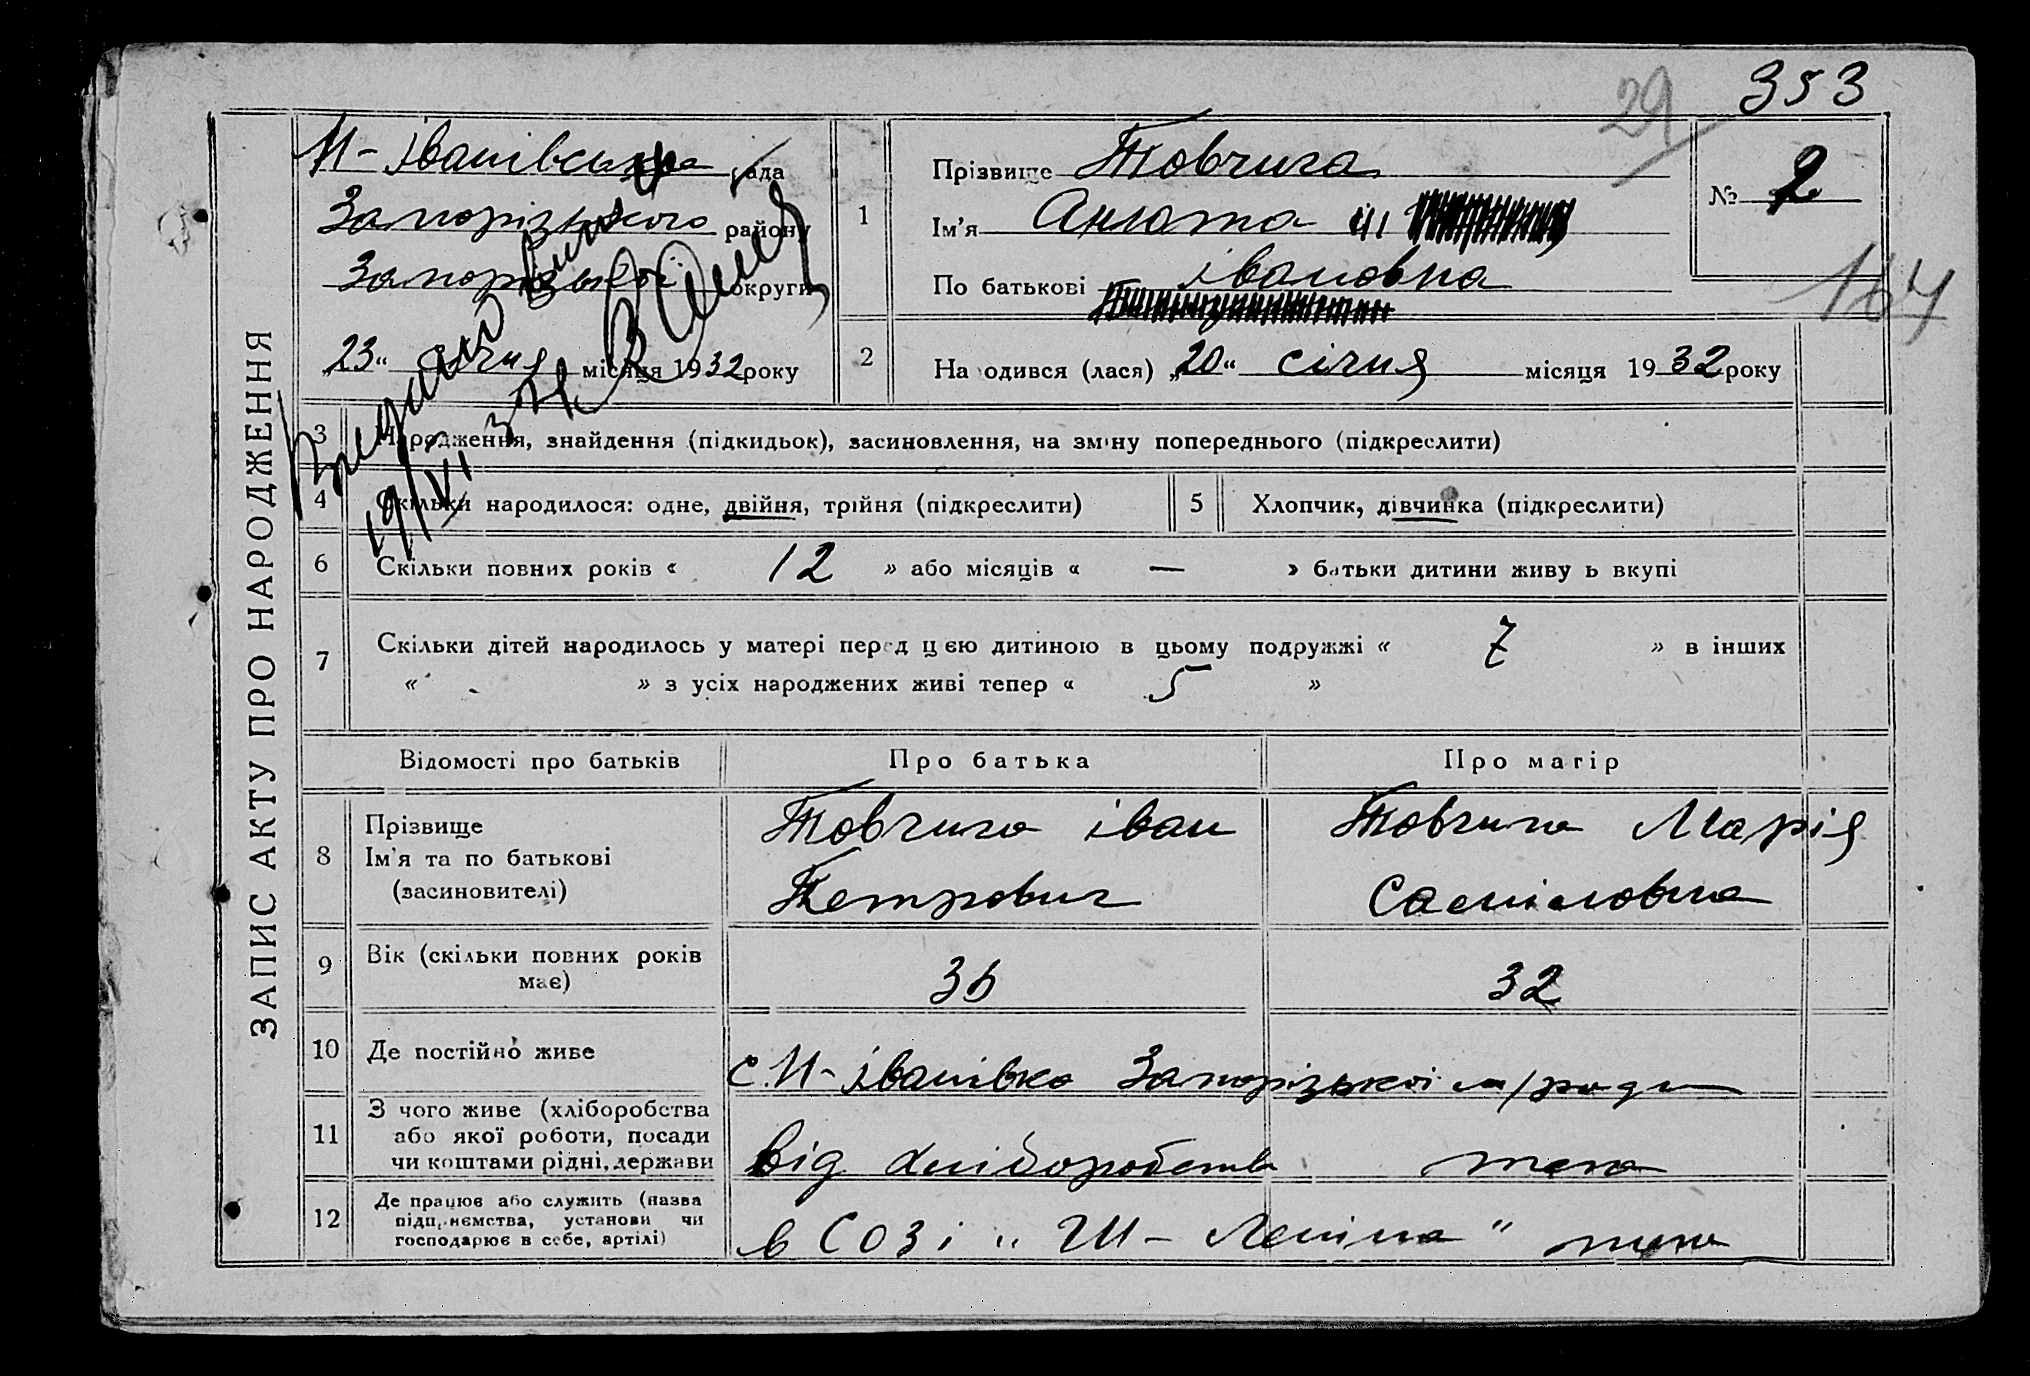 353
29
ЗАПИС АКТУ ПРО НАРОДЖЕННЯ
И-Іванівська рада
Запорізького району
Запорізької округи
„23“ січня місяця 1932 року
Видано
19/VI
1 Прізвище Товчига
Ім'я Анюта
По батькові Івановна
№ 2
164
2 На одився (лася) „20“ січня місяця 1932 року
3 Народження, знайдення (підкидьок), засиновлення, на зміну попереднього (підкреслити)
4 Скільки народилося: одне, двійня, трійня (підкреслити)
5 Хлопчик, дівчинка (підкреслити)
6 Скільки повних років « 12 » або місяців « — » батьки дитини живу ь вкупі
7 Скільки дітей народилось у матері перед цією дитиною в цьому подружжі « 7 » в інших
« » з усіх народжених живі тепер « 5 »
Відомості про батьків Про батька Про матір
8 Прізвище Ім'я та по батькові (засиновителі)
Товчига Іван Петрович
Товчига Марія Самійловна
9 Вік (скільки повних років має) 36 32
10 Де постійно живе с. И-Іванівка Запорізької м/ради
11 З чого живе (хліборобства або якої роботи, посади чи коштами рідні, держави
від хліборобства теж
12 Де працює або служить (назва підприємства, установи чи господарює в себе, артілі)
в СОЗі „ Леніна“